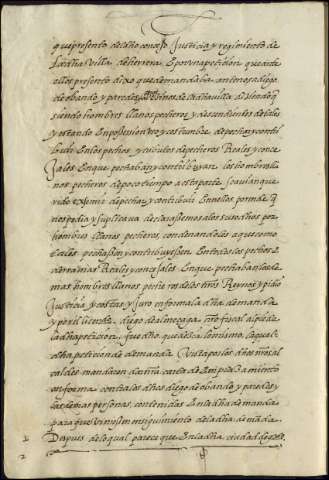 que presento del dho concejo Justicia y regimiento de
la dha Villa de herrera E por una peticion que ante
ellos presento dixo que demandaba antenos a diego
de obando y paredes vezinos de la dha villa diziendo q
siendo hombres llanos pecheros y descendientes de tales
y estando En possession uso y costumbre de pechar y contri
buir En los pechos y tributos de pecheros Reales y conce
Jales En que pechaban y contribuyan los hombres lla
nos pecheros de poco tiempo a esta parte se aulan que
rido eximir de pechar y contribuir En ellos por nde q
nos pedia y suplicava declarassemos a los susodhos por
hombres llanos pecheros, condenandoles a que como
tales pechassen y contribuyessen En todos los pechos E
derramas Reales y concejales En que pechaban los de
mas hombres llanos pecheros de los nros Reynos y pidio
Justicia y costas y Juro en forma la dha demanda
y por el licendo diego de almoraga nro fiscal al pie de
la dha peticion fue dho que dezia lo mismo, la qual
dha peticion de demanda Vista por los dhos nros al
caldes mandaron dar nra carta de Emplazamiento
en forma contra los dhos diego de obando y paredes y
las demas personas, contenidas En la dha demanda
para que viniesen en siguimiento de la dha demanda
Despues de lo qual parece que En la dha ciudad de grda
1
2